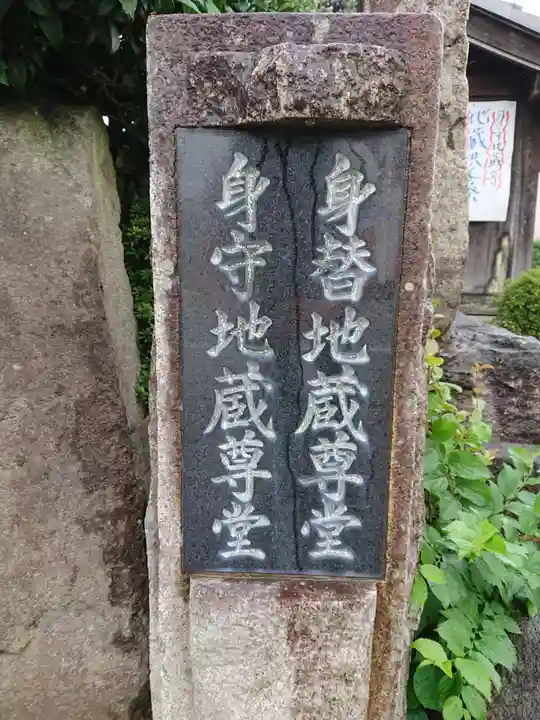 身替地蔵尊堂
身守地蔵尊堂
地蔵